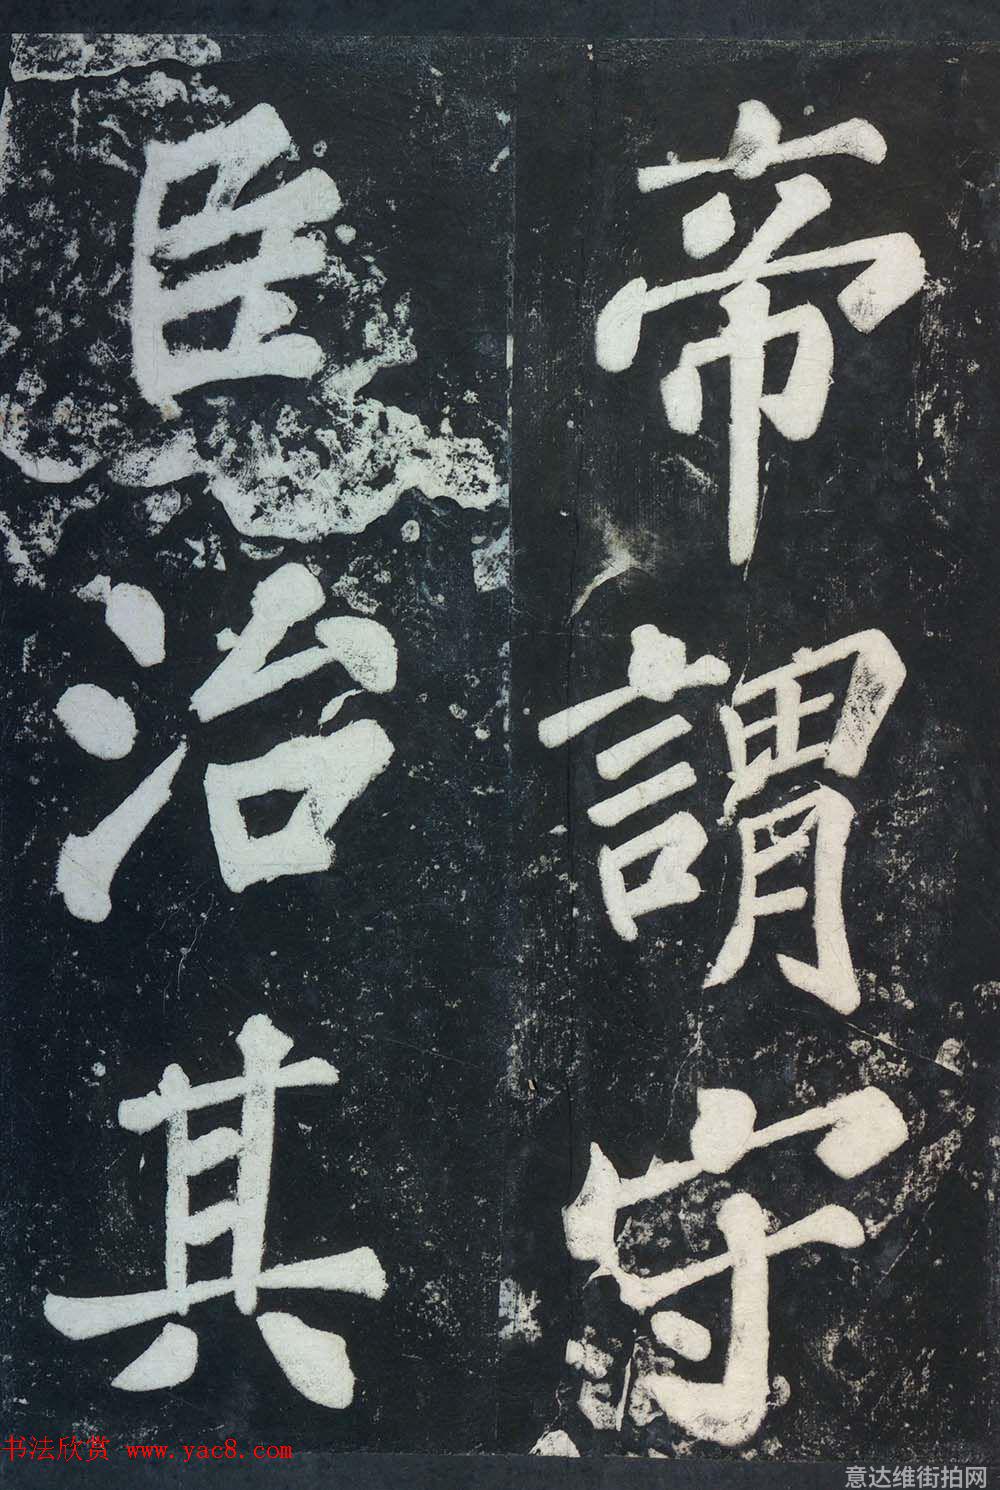 帝謂守
臣治其
书法欣赏 www.yac8.com
意达维街拍网